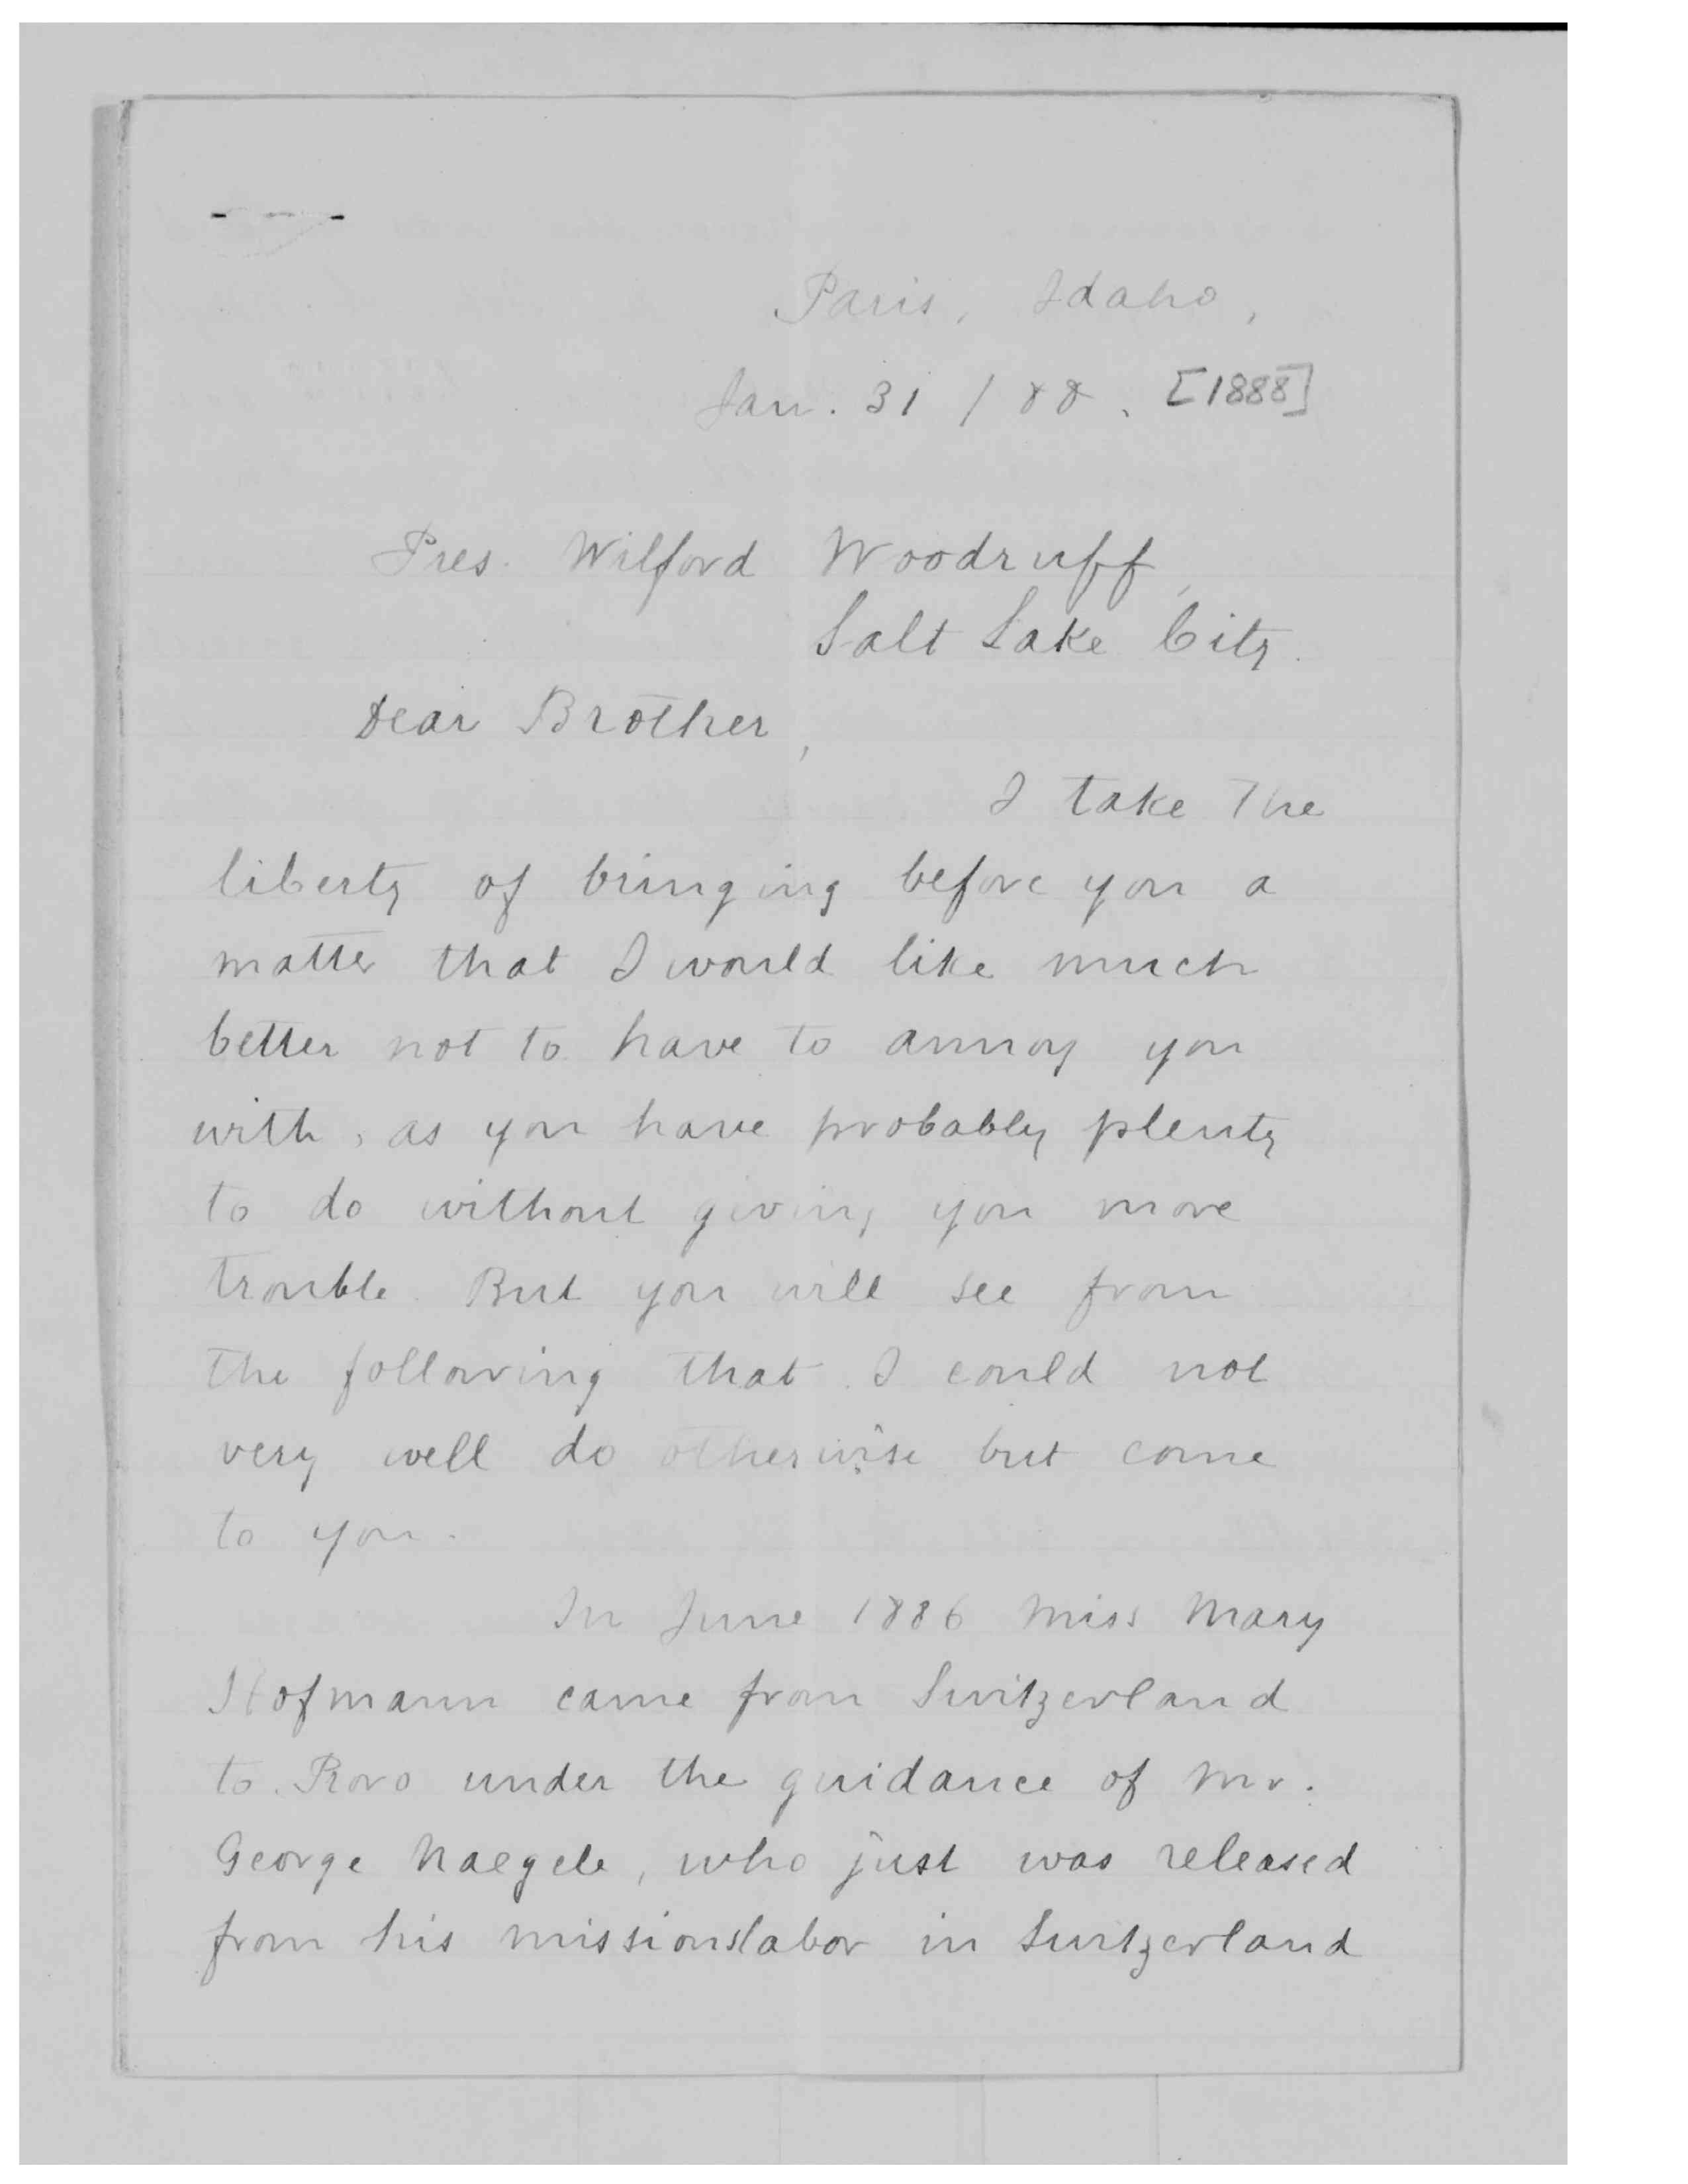 Paris, Idaho,
Jan. 31 / 88. [1888]
Pres. Wilford Woodruff,
Salt Lake City.
Dear Brother,
I take the
liberty of bringing before you a
matter that I would like much
better not to have to annoy you
with, as you have probably plenty
to do without giving you more
trouble. But you will see from
the following that I could not
very well do otherwise but come
to you.
In June 1886 Miss Mary
Hofmann came from Switzerland
to Provo under the guidance of Mr.
George Naegele, who just was released
from his missionslabor in Switzerland